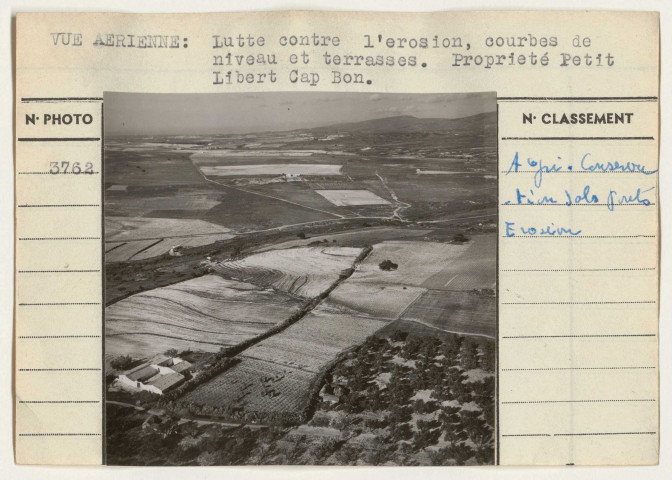 VUE AERIENNE: Lutte contre l'erosion, courbes de
niveau et terrasses. Proprieté Petit
Libert Cap Bon.
N° PHOTO
3762
N° CLASSEMENT
Agri. Conserva
-tion
Erosion